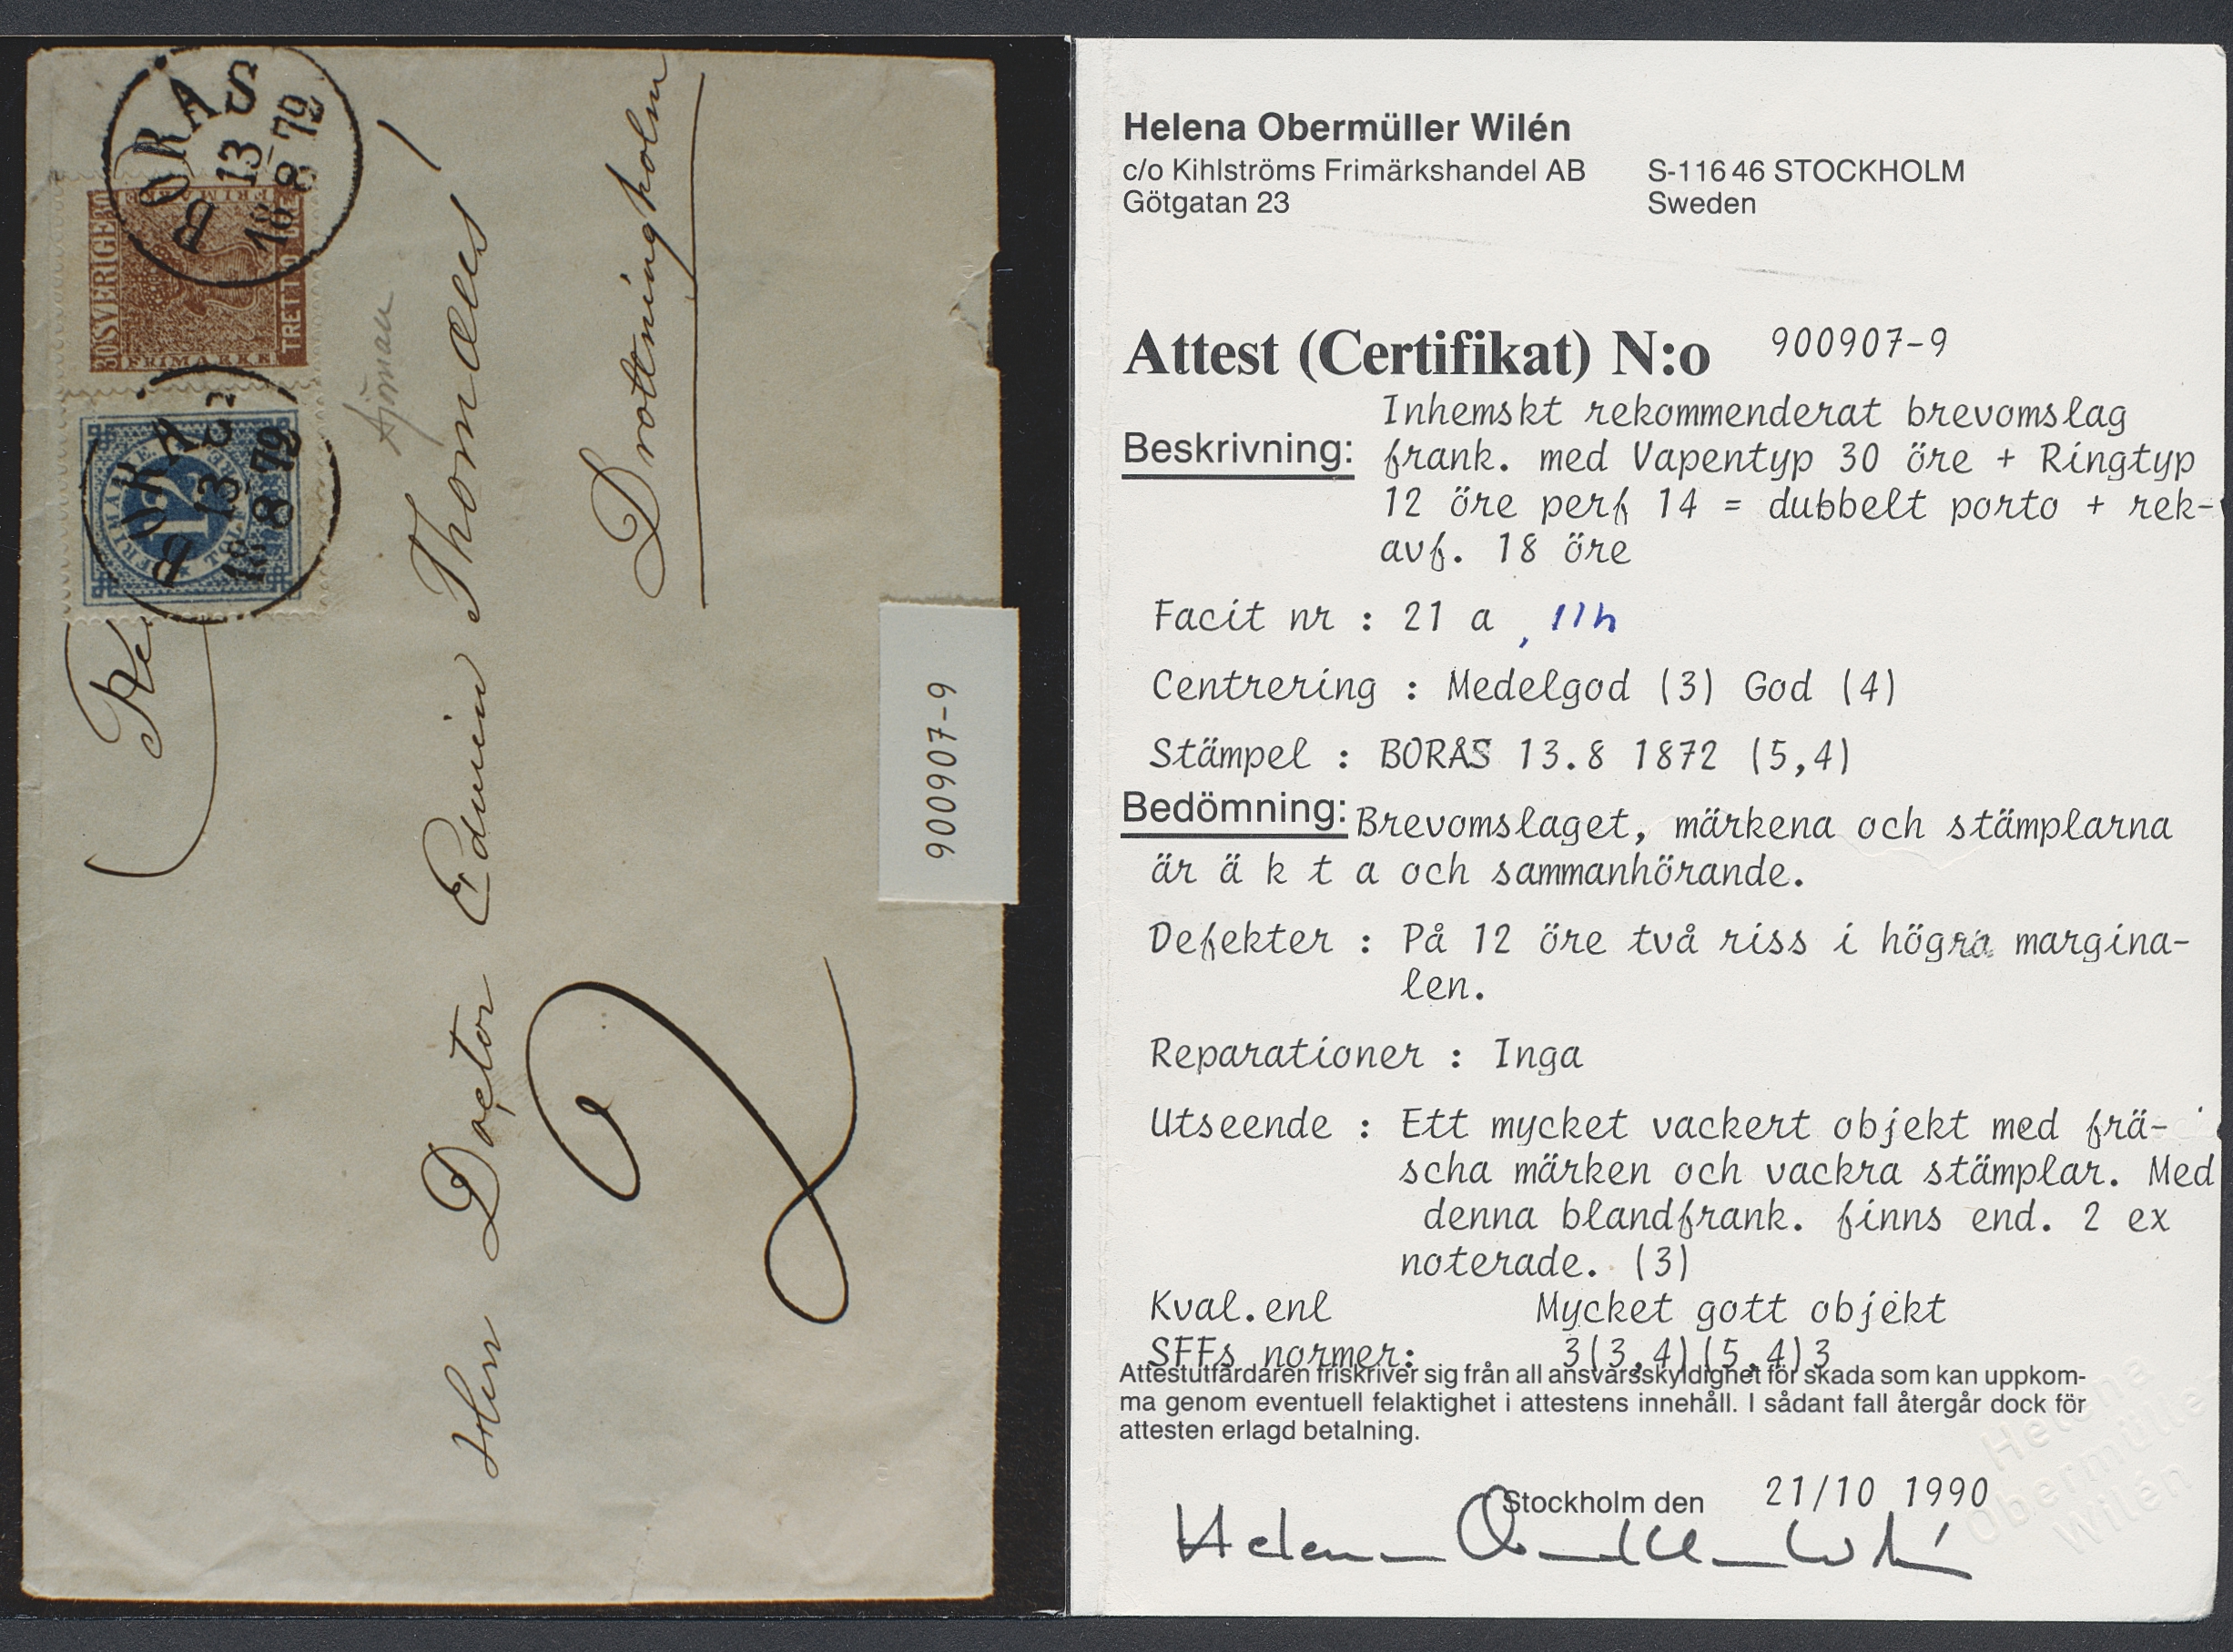 BORÅS
13
8
1872
30 SVERIGE 30
FRIMÄRKE
TRETTIO ÖRE
FRIMÄRKE
BORÅS
13
8
1872
12
FRIMÄRKE
Herr Doctor Edwin Thomæus
Drottningholm
2
900907-9
Helena Obermüller Wilén
c/o Kihlströms Frimärkshandel AB S-116 46 STOCKHOLM
Götgatan 23 Sweden
Attest (Certifikat) N:o 900907-9
Inhemskt rekommenderat brevomslag
Beskrivning: frank. med Vapentyp 30 öre + Ringtyp
12 öre perf 14 = dubbelt porto + rek-
avf. 18 öre
Facit nr : 21 a , 11h
Centrering : Medelgod (3) God (4)
Stämpel : BORÅS 13.8 1872 (5,4)
Bedömning: Brevomslaget, märkena och stämplarna
är ä k t a och sammanhörande.
Defekter : På 12 öre två riss i högra margina-
len.
Reparationer : Inga
Utseende : Ett mycket vackert objekt med frä-
scha märken och vackra stämplar. Med
denna blandfrank. finns end. 2 ex
noterade. (3)
Kval.enl Mycket gott objekt
SFFs normer: 3(3,4)(5,4)3
Attestutfärdaren friskriver sig från all ansvarsskyldighet för skada som kan uppkom-
ma genom eventuell felaktighet i attestens innehåll. I sådant fall återgår dock för
attesten erlagd betalning.
Stockholm den 21/10 1990
Helena Obermüller Wilén
Helena
Obermüller
Wilén